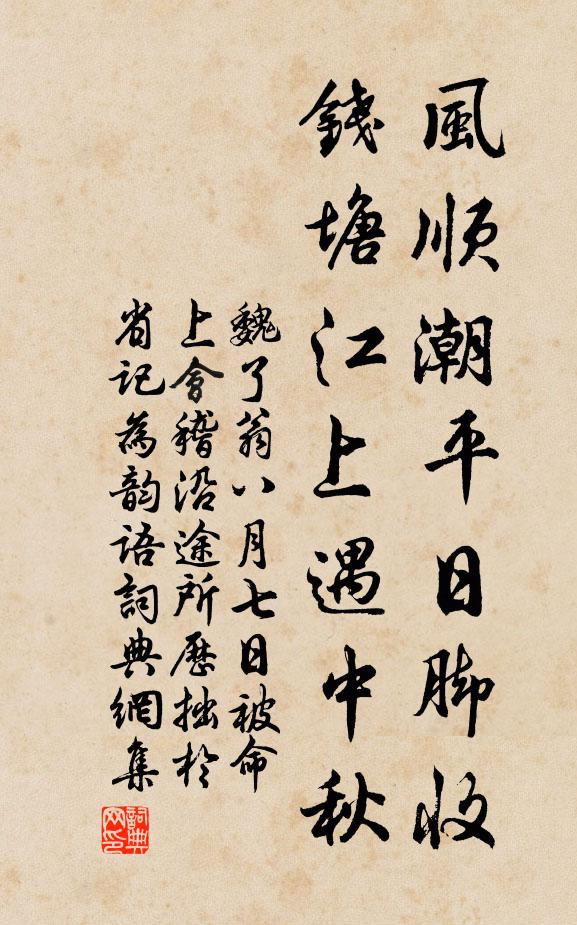 風順潮平日脚收
錢塘江上遇中秋
魏了翁八月七日被命
上會稽沿途所歷拙於
省記為韵語詞典網集
詞典网印